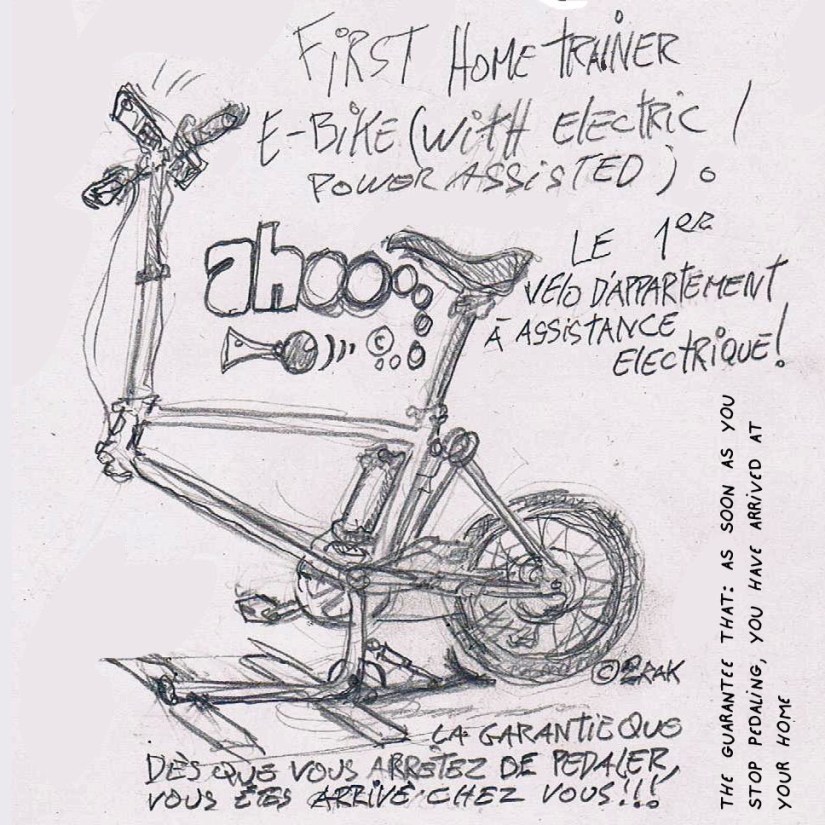 FIRST HOME TRAINER
E-BIKE (WITH ELECTRIC /
POWER ASSISTED) .
ahooo
LE 1ER
VÉLO D'APPARTEMENT
À ASSISTANCE
ELECTRIQUE!
©
© 2RAK
LA GARANTIE QUE
DÈS QUE VOUS ARRÊTEZ DE PEDALER,
VOUS ÊTES ARRIVÉ CHEZ VOUS!!!
THE GUARANTEE THAT: AS SOON AS YOU
STOP PEDALING, YOU HAVE ARRIVED AT
YOUR HOME